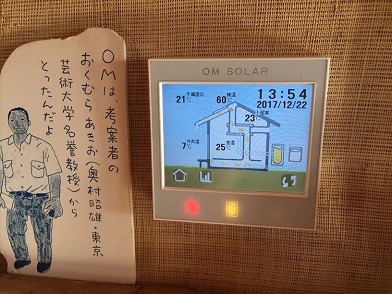 OMは、考案者の
おくむらあきお（奥村昭雄・東京
芸術大学名誉教授）から
とったんだよ
OM SOLAR
13:54
2017/12/22
21℃
60℃
23℃
7℃
外気温
室温
25℃